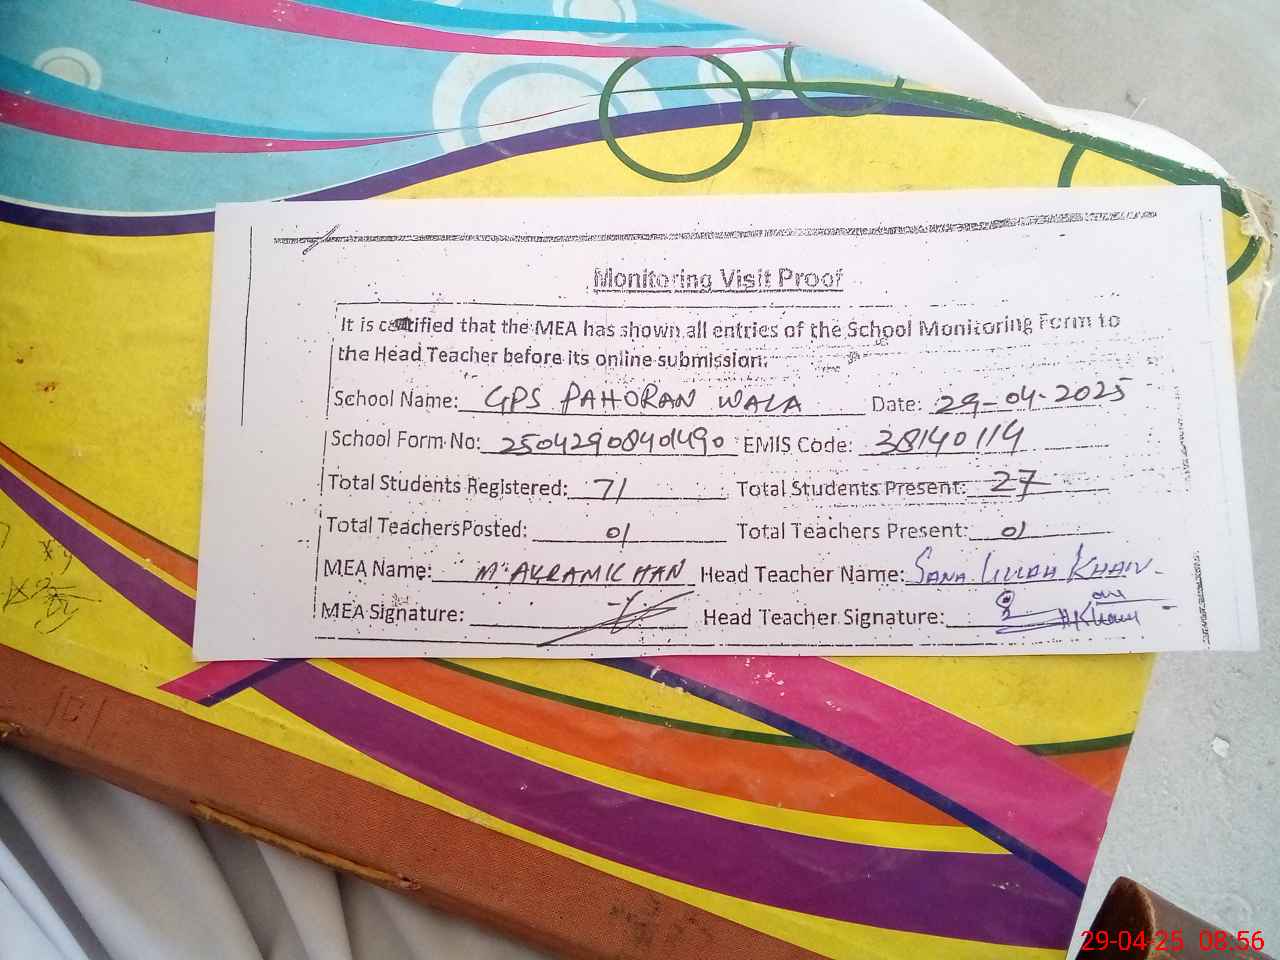 Monitoring Visit Proof
It is certified that the MEA has shown all entries of the School Monitoring Form to
the Head Teacher before its online submission.
School Name: GPS PAHORAN WALA Date: 29-04-2025
School Form No: 25042908401490 EMIS Code: 38140114
Total Students Registered: 71 Total Students Present: 27
Total Teachers Posted: 01 Total Teachers Present: 01
MEA Name: M. AKRAM KHAN Head Teacher Name: SANA ULLAH KHAN
MEA Signature: Head Teacher Signature:
29-04-25 08:56